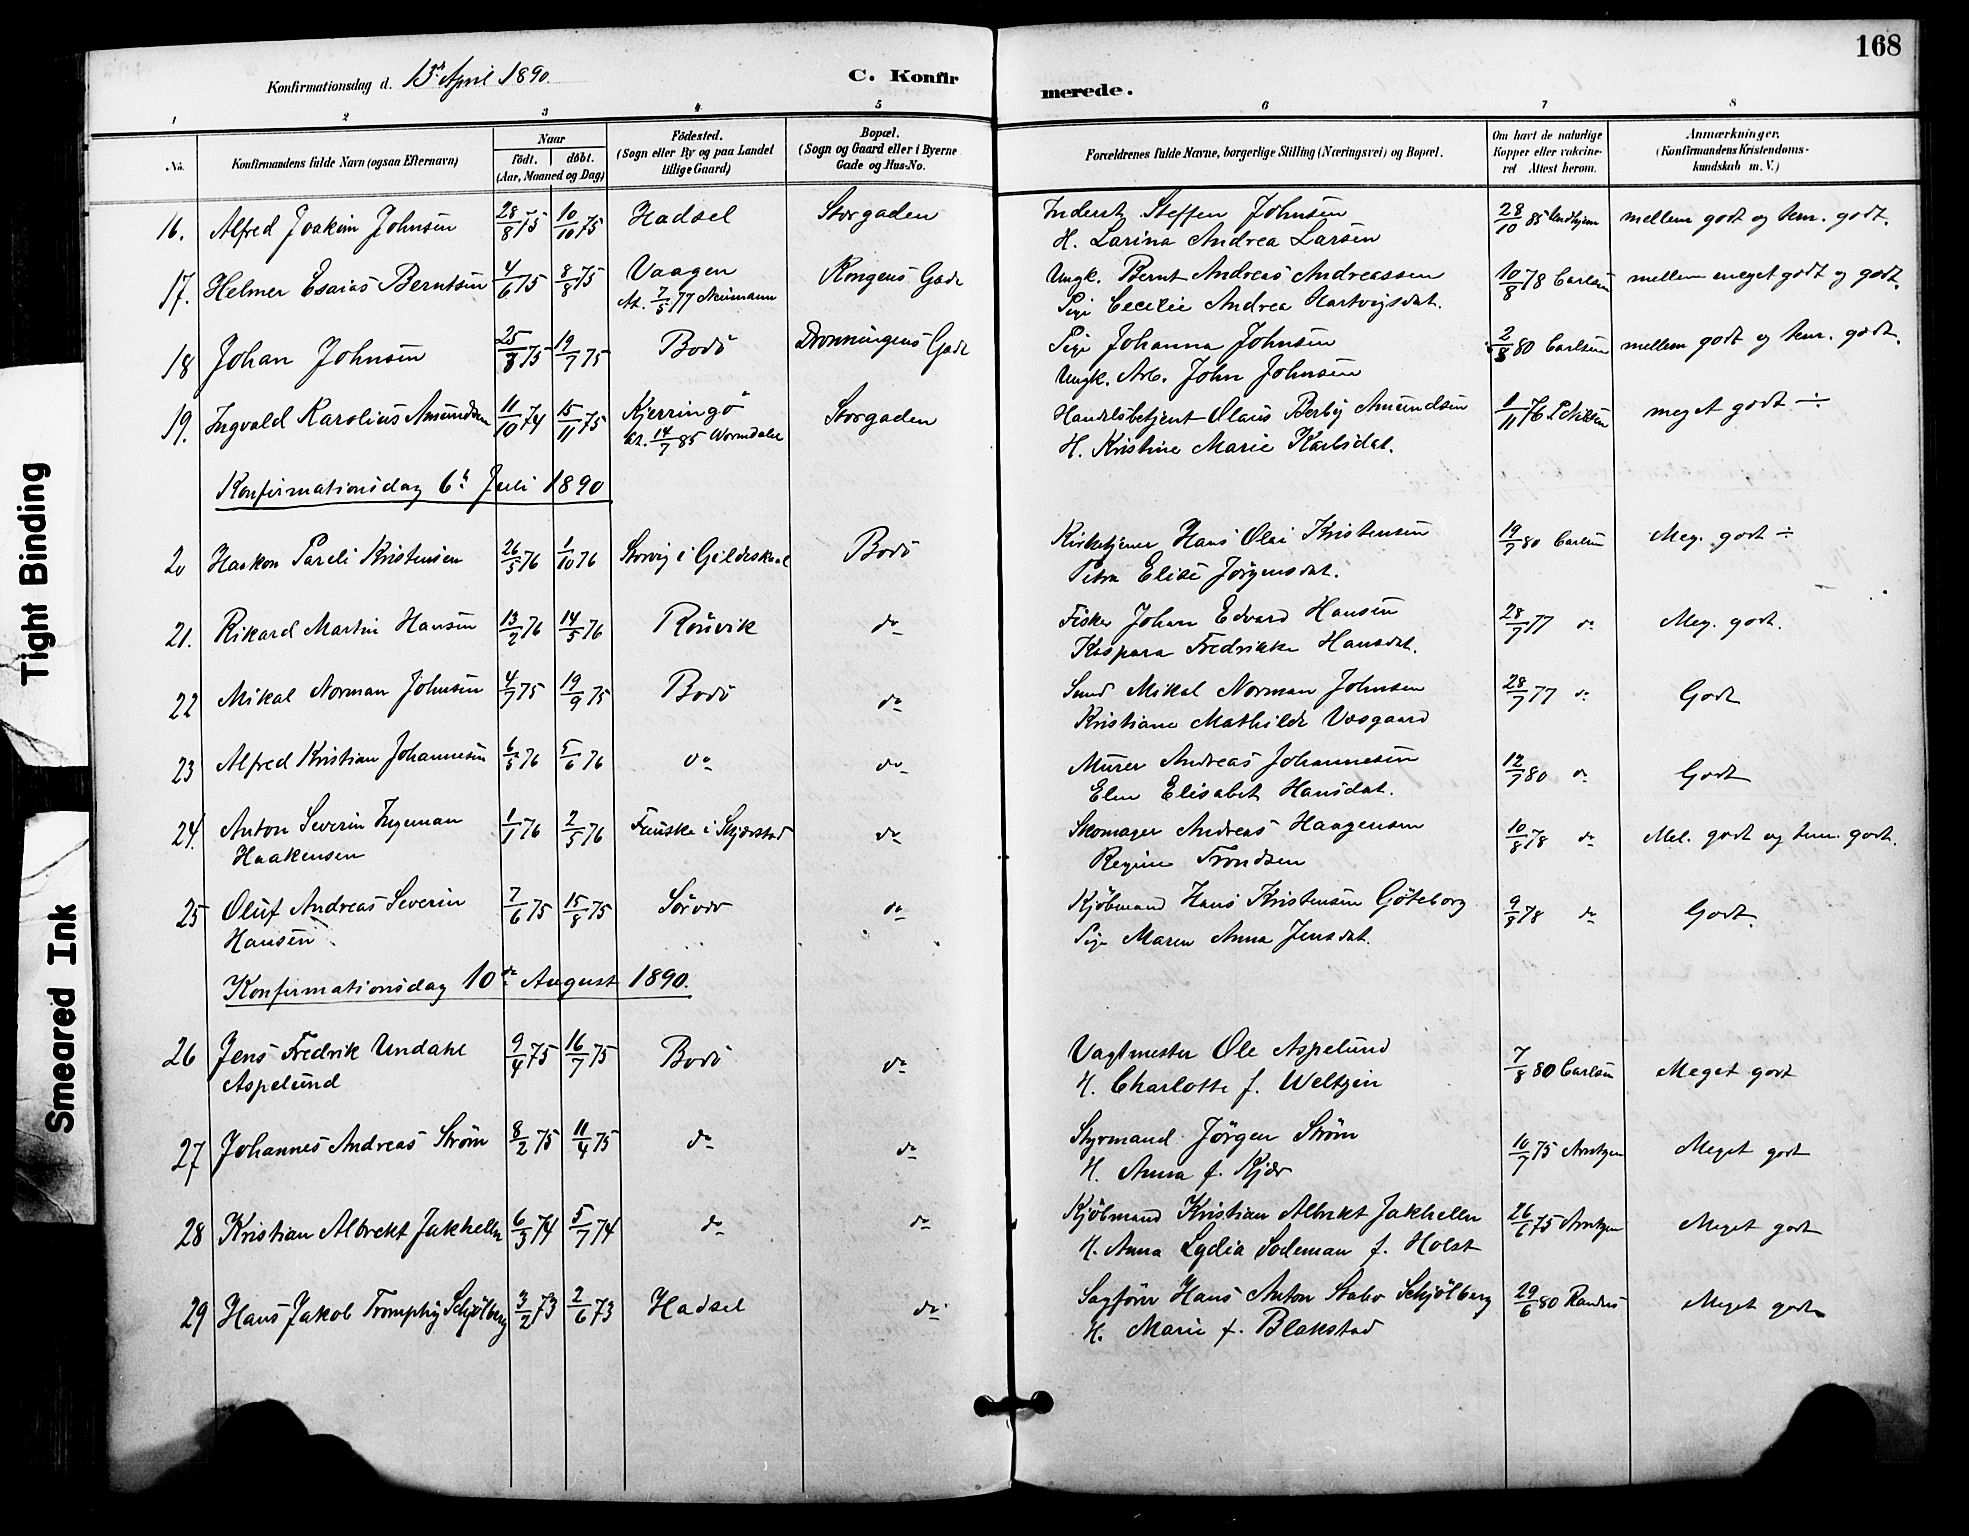 168
Konfirmationsdag d. 13de April 1890.
C. Konfir
merede.
1 2 3 4 5 6 7 8
No.
Konfirmandens fulde Navn (ogsaa Efternavn)
Naar
födt. döbt.
(Aar, Maaned og Dag)
Födested.
(Sogn eller By og paa Landet
tillige Gaard)
Bopæl.
(Sogn og Gaard eller i Byerne
Gade og Hus-No.
Forældrenes fulde Navne, borgerlige Stilling (Næringsvei) og Bopæl.
Om havt de naturlige
Kopper eller vakcine-
ret Attest herom.
Anmærkninger.
(Konfirmandens Kristendoms-
kundskab m. V.)
16. Alfred Joakim Johnsen 28/8 75 10/10 75 Hadsel Storgaden Steffen Johnsen 28/10 85 mellem godt og tem. godt.
H. Larina Andrea Larsen
17. Helmer Esaias Berntsen 4/6 75 8/8 75 Vaagen Kongens Gade Ungk. Bernt Andreas Andreassen 10/8 78 Carlsen mellem meget godt og godt.
At. 7/5 77 Neumann Pige Cecelie Andrea Hartvigsdat.
18 Johan Johnsen 25/3 75 19/7 75 Bodö Dronningens Gade Pige Johanna Johnsen 2/8 80 Carlsen mellem godt og tem. godt.
Ungk. Arb. John Johnsen
19. Ingvald Karolius Amundsen 11/10 74 15/11 75 Kjerringö Storgaden Handelsbetjent Olaus Berby Amundsen 1/11 76 meget godt ÷
14/7 85 Normdalse H. Kristine Marie Karlsdat.
Konfirmationsdag 6te Juli 1890
20 Haakon Pareli Kristensen 26/5 76 1/10 76 Storvig i Gildeskaal Bodö Kirketjener Hans Olai Kristensen 19/7 80 Carlsen Meg. godt ÷
Petra Elise Jörgensdat.
21. Rikard Martin Hansen 13/2 76 14/5 76 Rönvik do Fisker Johan Edvard Hansen 28/7 77 do Meg. godt.
Kaspara Fredrikke Hansdat.
22 Mikal Norman Johnsen 4/7 75 19/9 75 Bodö do Smed Mikal Norman Johnsen 28/7 77 do Godt
Kristiane Mathilde Vosgaard
23 Alfred Kristian Johannesen 6/5 76 5/6 76 do do Murer Andreas Johannesen 12/7 80 do Godt
Elen Elisabet Hansdat.
24. Anton Severin Ingeman 1/1 76 2/5 76 Fauske i Skjerstad do Skomager Andreas Haagensen 10/8 78 do Mel. godt og tem. godt.
Haakensen Regine Trondsen
25 Oluf Andreas Severin 7/6 75 15/8 75 Sörvær do Kjöbmand Hans Kristensen Göteborg 9/9 78 do Godt.
Hansen Pige Maren Anna Jensdat.
Konfirmationsdag 10de August 1890.
26 Jens Fredrik Undahl 9/4 75 16/7 75 Bodö do Vagtmester Ole Aspelund 7/8 80 Carlsen Meget godt
Aspelund H. Charlotte f. Weltzin
27 Johannes Andreas Ström 8/2 75 11/4 75 do do Styrmand Jörgen Ström 10/7 75 Arntzen Meget godt
H. Anna f. Kjær
28 Kristian Albrekt Jakhelln 6/3 74 5/7 74 do do Kjöbmand Kristian Albrekt Jakhelln 26/6 75 Arntzen Meget godt
H. Anna Lydia Sodeman f. Holst
29 Hans Jakob Tromphy Schjölberg 3/2 73 2/6 73 Hadsel do Sagförer Hans Anton Stabo Schjölberg 29/6 80 Randers Meget godt
H. Marie f. Blakstad
Tight Binding
Smeared Ink